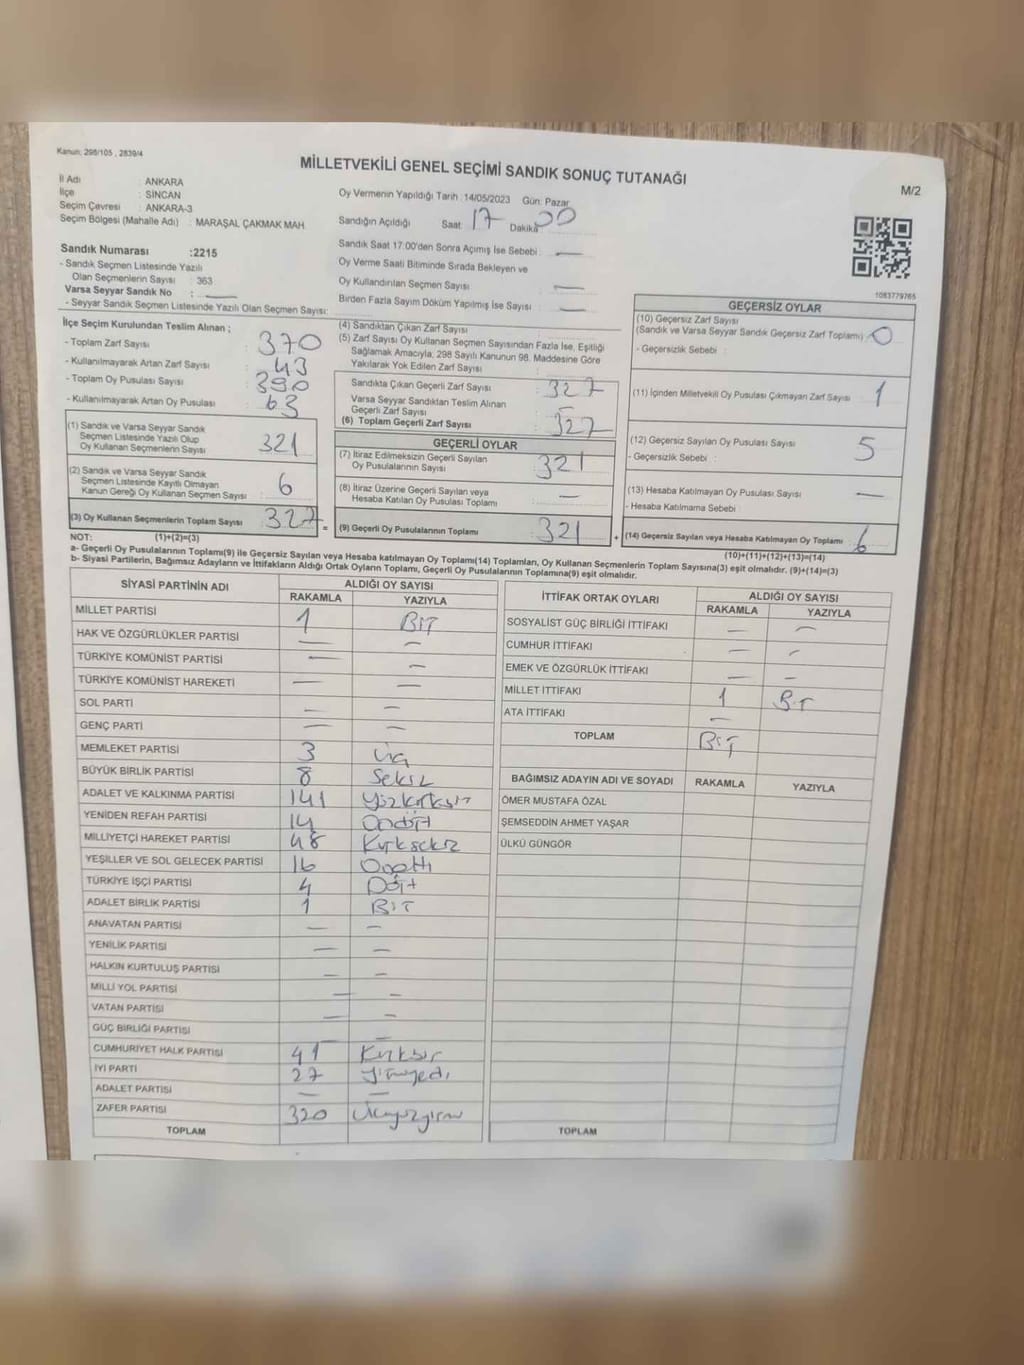 Kanun: 298/105 , 2839/4
MİLLETVEKİLİ GENEL SEÇİMİ SANDIK SONUÇ TUTANAĞI
M/2
İl Adı : ANKARA
İlçe : SİNCAN
Seçim Çevresi : ANKARA-3
Seçim Bölgesi (Mahalle Adı) : MARAŞAL ÇAKMAK MAH.
Oy Vermenin Yapıldığı Tarih : 14/05/2023 Gün: Pazar
Sandığın Açıldığı Saat 17 Dakika 00
Sandık Saat 17:00'den Sonra Açımış İse Sebebi : —
Oy Verme Saati Bitiminde Sırada Bekleyen ve
Oy Kullandırılan Seçmen Sayısı : —
Birden Fazla Sayım Döküm Yapılmış İse Sayısı : —
Sandık Numarası :2215
- Sandık Seçmen Listesinde Yazılı
Olan Seçmenlerin Sayısı : 363
Varsa Seyyar Sandık No : —
- Seyyar Sandık Seçmen Listesinde Yazılı Olan Seçmen Sayısı:
1083779765
İlçe Seçim Kurulundan Teslim Alınan ;
- Toplam Zarf Sayısı : 370
- Kullanılmayarak Artan Zarf Sayısı : 43
- Toplam Oy Pusulası Sayısı : 390
- Kullanılmayarak Artan Oy Pusulası : 63
(1) Sandık ve Varsa Seyyar Sandık
Seçmen Listesinde Yazılı Olup
Oy Kullanan Seçmenlerin Sayısı : 321
(2) Sandık ve Varsa Seyyar Sandık
Seçmen Listesinde Kayıtlı Olmayan
Kanun Gereği Oy Kullanan Seçmen Sayısı : 6
(3) Oy Kullanan Seçmenlerin Toplam Sayısı : 327 =
(4) Sandıktan Çıkan Zarf Sayısı :
(5) Zarf Sayısı Oy Kullanan Seçmen Sayısından Fazla İse, Eşitliği
Sağlamak Amacıyla, 298 Sayılı Kanunun 98. Maddesine Göre
Yakılarak Yok Edilen Zarf Sayısı :
Sandıkta Çıkan Geçerli Zarf Sayısı : 327
Varsa Seyyar Sandıktan Teslim Alınan
Geçerli Zarf Sayısı : —
(6) Toplam Geçerli Zarf Sayısı : 327
GEÇERLİ OYLAR
(7) İtiraz Edilmeksizin Geçerli Sayılan
Oy Pusulalarının Sayısı : 321
(8) İtiraz Üzerine Geçerli Sayılan veya
Hesaba Katılan Oy Pusulası Toplamı : —
(9) Geçerli Oy Pusulalarının Toplamı : 321 +
GEÇERSİZ OYLAR
(10) Geçersiz Zarf Sayısı
(Sandık ve Varsa Seyyar Sandık Geçersiz Zarf Toplamı) : 0
- Geçersizlik Sebebi :
(11) İçinden Milletvekili Oy Pusulası Çıkmayan Zarf Sayısı : 1
(12) Geçersiz Sayılan Oy Pusulası Sayısı : 5
- Geçersizlik Sebebi :
(13) Hesaba Katılmayan Oy Pusulası Sayısı : —
- Hesaba Katılmama Sebebi :
(14) Geçersiz Sayılan veya Hesaba Katılmayan Oy Toplamı : 6
NOT: (1)+(2)=(3)
(10)+(11)+(12)+(13)=(14)
a- Geçerli Oy Pusulalarının Toplamı(9) ile Geçersiz Sayılan veya Hesaba katılmayan Oy Toplamı(14) Toplamları, Oy Kullanan Seçmenlerin Toplam Sayısına(3) eşit olmalıdır. (9)+(14)=(3)
b- Siyasi Partilerin, Bağımsız Adayların ve İttifakların Aldığı Ortak Oyların Toplamı, Geçerli Oy Pusulalarının Toplamına(9) eşit olmalıdır.
SİYASİ PARTİNİN ADI ALDIĞI OY SAYISI
RAKAMLA YAZIYLA
MİLLET PARTİSİ 1 BİR
HAK VE ÖZGÜRLÜKLER PARTİSİ — —
TÜRKİYE KOMÜNİST PARTİSİ — —
TÜRKİYE KOMÜNİST HAREKETİ — —
SOL PARTİ — —
GENÇ PARTİ — —
MEMLEKET PARTİSİ 3 Üç
BÜYÜK BİRLİK PARTİSİ 8 Sekiz
ADALET VE KALKINMA PARTİSİ 141 Yüzkırkbir
YENİDEN REFAH PARTİSİ 14 Ondört
MİLLİYETÇİ HAREKET PARTİSİ 48 Kırksekiz
YEŞİLLER VE SOL GELECEK PARTİSİ 16 Onaltı
TÜRKİYE İŞÇİ PARTİSİ 4 Dört
ADALET BİRLİK PARTİSİ 1 BİR
ANAVATAN PARTİSİ — —
YENİLİK PARTİSİ — —
HALKIN KURTULUŞ PARTİSİ — —
MİLLİ YOL PARTİSİ — —
VATAN PARTİSİ — —
GÜÇ BİRLİĞİ PARTİSİ — —
CUMHURİYET HALK PARTİSİ 41 Kırkbir
İYİ PARTİ 27 Yirmiyedi
ADALET PARTİSİ — —
ZAFER PARTİSİ 320 Üçyüzyirmi
TOPLAM
İTTİFAK ORTAK OYLARI ALDIĞI OY SAYISI
RAKAMLA YAZIYLA
SOSYALİST GÜÇ BİRLİĞİ İTTİFAKI — —
CUMHUR İTTİFAKI — —
EMEK VE ÖZGÜRLÜK İTTİFAKI — —
MİLLET İTTİFAKI 1 BİR
ATA İTTİFAKI —
TOPLAM BİR
BAĞIMSIZ ADAYIN ADI VE SOYADI RAKAMLA YAZIYLA
ÖMER MUSTAFA ÖZAL
ŞEMSEDDİN AHMET YAŞAR
ÜLKÜ GÜNGÖR
TOPLAM